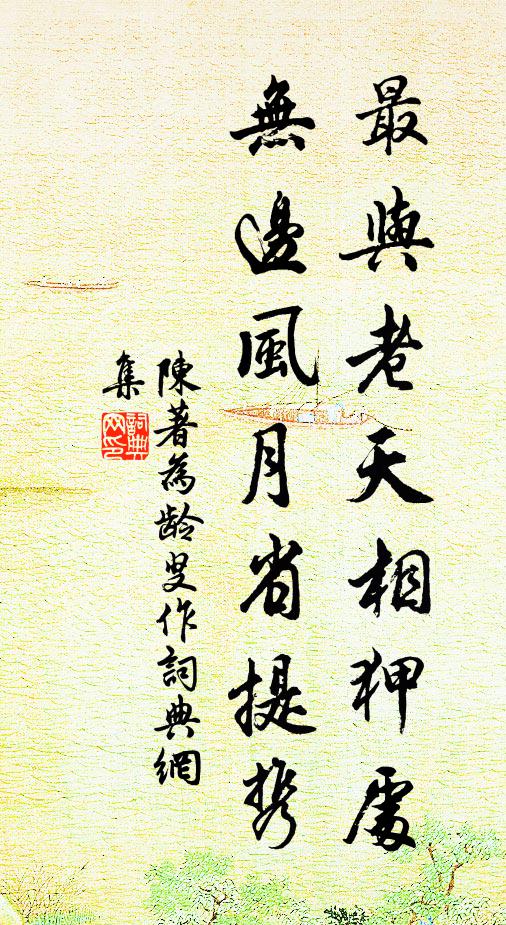 最與老天相狎處
無邊風月省提携
陳著為龄叟作詞典網
集
詞典网印